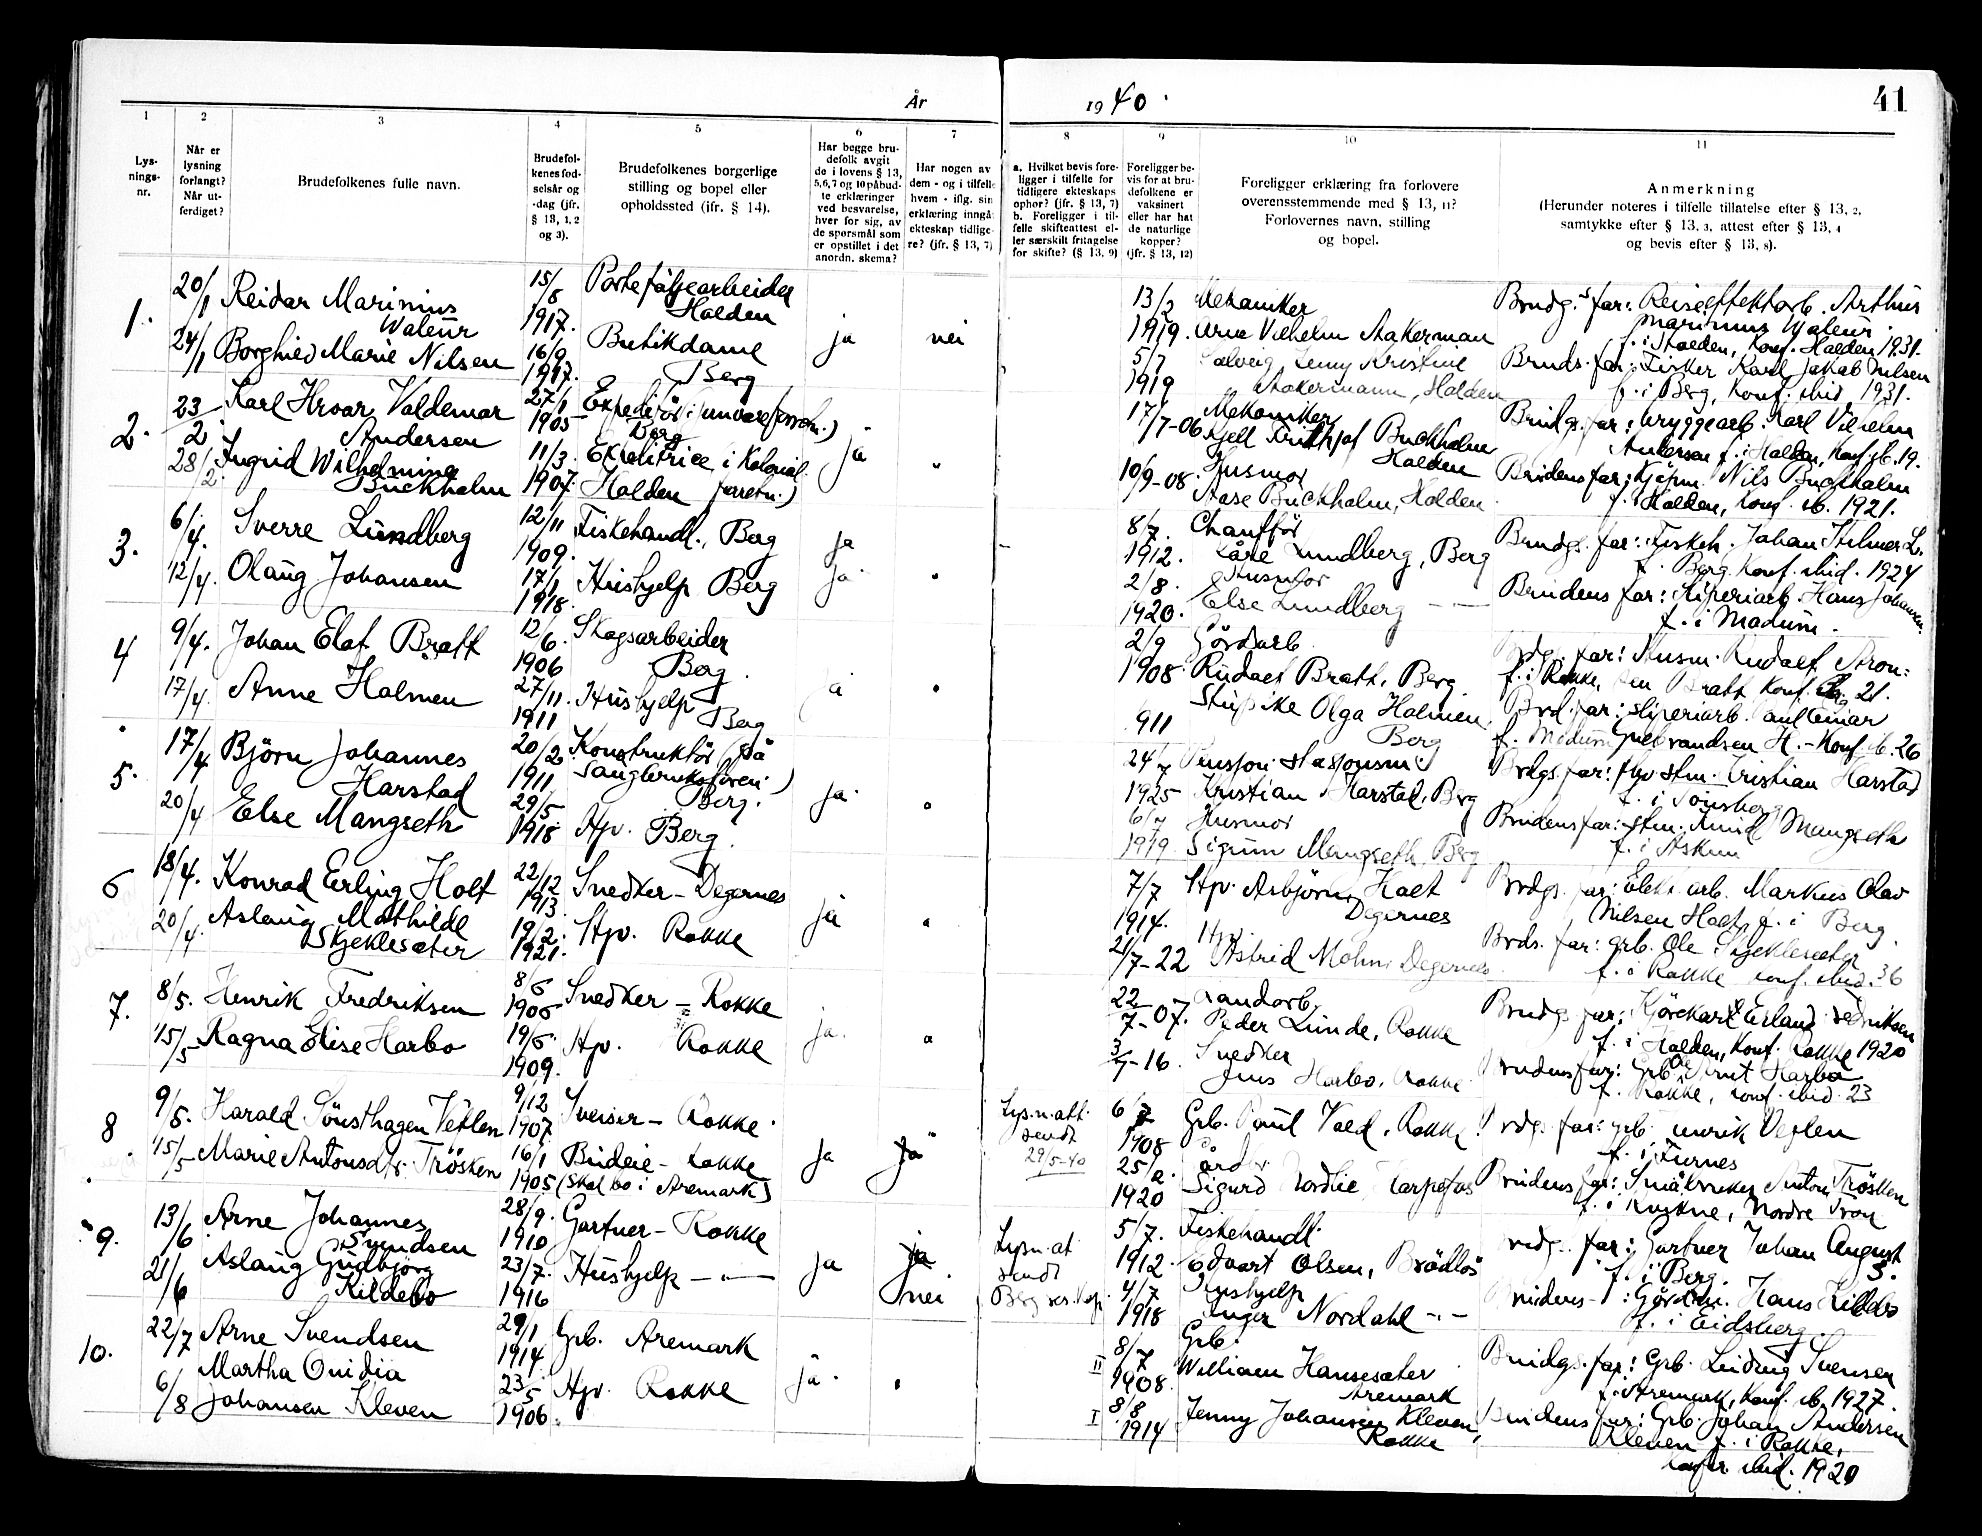 År
19 40.
41
1
Lys-
nings-
nr.
2
Når er
lysning
forlangt?
Når ut-
ferdiget?
3
Brudefolkenes fulle navn.
4
Brudefol-
kenes fød-
selsår og
-dag (jfr.
§ 13, 1, 2
og 3).
5
Brudefolkenes borgerlige
stilling og bopel eller
opholdssted (ifr. § 14).
6
Har begge bru-
defolk avgit
de i lovens § 13,
5,6,7 og 10 påbud-
te erklæringer
ved besvarelse,
hver for sig, av
de spørsmål som
er opstillet i det
anordn. skema?
7
Har nogen av
dem - og i tilfelle
hvem - iflg. sin
erklæring inngå
ekteskap tidlige-
re? (jfr. § 13, 7)
8
a. Hvilket bevis fore-
ligger i tilfelle for
tidligere ekteskaps
ophor? (jfr. § 13, 7)
b. Foreligger i til-
felle skifteattest el-
ler særskilt fritagelse
for skifte? (§ 13, 9)
9
Foreligger be-
vis for at bru-
defolkene er
vaksinert
eller har hat
de naturlige
kopper?
(jfr. § 13, 12)
10
Foreligger erklæring fra forlovere
overensstemmende med § 13, 11?
Forlovernes navn, stilling
og bopel.
11
Anmerkning
(Herunder noteres i tilfelle tillatelse efter § 13, 2,
samtykke efter § 13, 3, attest efter § 13, 4
og bevis efter § 13, 8).
1.
20/1
24/1
Reidar Marinius
Waleur
Borghild Marie Nilsen
15/8
1917.
16/9
1917.
Porteføljearbeider
Halden
Butikdame
Berg
ja
nei
13/2
1919.
5/7
1919
Mekaniker
Arne Vilhelm Aakerman
Solveig Jenny Kristine
Aakermann, Halden
Brudg.s far: Reiseffektarb. Arthur
Marinius Waleur.
f. i Halden, konf. Halden 1931.
Bruds. far: Fisker Karl Jakob Nilsen
f. i Berg, konf. ibid 1931.
2.
23/2
28/2
Karl Hroar Valdemar
Andersen
Ingrid Wilhelmine
Buckholm
27/1
1905
11/3.
1907.
Berg
Expeditrice i Kolonial
Halden forretn.)
ja
"
17/7-06
10/9-08.
Mekaniker
Kjell Fridthjof Buckholm
Halden
Husmor
Aase Buckholm, Halden.
Brudgs. far: Bryggearb. Karl Vilhelm
Andersen f. i Halden, konf. ib. 19.
Brudens far: Kjøpm. Nils Buckholm
f. Halden, konf. ib. 1921.
3.
6/4.
12/4.
Sverre Lundberg
Olaug Johansen
12/11
1909.
17/1
1918.
Fiskehandl., Berg
Hushjelp Berg
ja
ja
"
8/7.
1912.
2/8.
1920.
Chauffør
Kåre Lundberg, Berg
Husmor
Else Lundberg - " -
Brudgs. far: Fiskeh. Johan Hilmar L.
f. Berg. konf. ibid. 1924
Brudens far: Sliperiarb. Hans Johansen.
f. i Modum.
4
9/4.
17/4
Johan Elof Bratt
Anne Holmen
12/6.
1906
27/11.
1911
Skogsarbeider
Berg.
Hushjelp
Berg
ja
"
2/9
1908.
911
Gårdarb.
Rudolf Bratt, Berg.
Olga Holmen,
Berg
Brdgs. far: Husm. Rudolf Aron-
f. i Rokke, sen Bratt konf. 21.
Brd. far: sliperiarb. Paul Einar
f. Modum Gulbrandsen H. - Konf. ib. 26
5.
17/4
20/4
Björn Johannes
Harstad
Else Mangseth
20/2
1911
29/5
1918
Konstruktør på
Berg.
Hp. Berg.
ja.
"
24/7
1925
6/7
1919
Pensjon. stasjonsm.
Kristian Harstad, Berg
Husmor
Sigrun Mangseth, Berg
Brdgs. far: stm. Kristian Harstad
f. i Tønsberg
Brudens far: stm. Mangseth
f. i Askim
6
18/4.
20/4.
Konrad Erling Holt
Aslaug Mathilde
Skjeklesæter
22/12
1913.
19/2.
1921.
Snedker - Degernes
Hp. Rokke
ja
"
7/7
1914.
21/7-22
Hp. Asbjørn Holt
Degernes
Hp.
Astrid Mohn, Degernes.
Brdgs. far: Elekt. arb. Markus Olav
Nilsen Holt, f. i Berg.
Brds. far: grb. Ole Skjeklesæter
f. i Rokke konf. ibid. 36
7.
8/5.
15/5
Henrik Fredriksen
Ragna Elise Harbo
8/6
1906
19/6.
1909.
Snedker - Rokke
Hp. Rokke
ja.
"
22/7-07.
3/7-16.
Landarb.
Peder Lunde, Rokke
Snedker
Jens Harbo, Rokke
Brudgs far: Erland Fredriksen
f. i Halden, konf. Rokke 1920
Brudens far: Grb. Harbo
f. Rokke, konf. ibid. 23
8
9/5.
15/5
Harald Sønsthagen Veflen
Marie Antonsdtr. Trøsken
9/12
1907.
16/1
1905
Sveiser - Rokke.
Budeie - Rokke
(Skal bo i Aremark)
ja
ja
Lysn. att.
sendt
29/5-40
6/7
1908
25/2.
1920
Grb. Paul Voll, Rokke
Sigurd Nordlie
Brdgs. far: grb. Henrik Veflen
f. i Furnes
Brudens far: Småbruker Anton Trøsken
f. i Kvikne, Nordre Tron
9.
13/6
21/6
Arne Johannes
Svendsen
Aslaug Gudbjørg
Kildebo
28/9.
1910
23/7.
1916
Gartner - Rokke
Hushjelp - " -
ja
ja
nei
Lysn. at
sendt
Berg
5/7.
1912.
4/7
1918
Fiskehandl.
Edvart Olsen, Brødløs
Hushjelp
Inger Nordahl - " -
Brudg. far: Gartner Johan August
f. i Berg. S.
Brudens - " - : Hans Kildebo
f. i Eidsberg.
10.
22/7
6/8
Arne Svendsen
Martha Ovidia
Johansen Kleven
29/1
1914
23/5
1906.
Grb. Aremark
Hp. Rokke
ja.
"
II
I
8/7
1908.
8/8
1914
Grb.
William Hansesæter
Aremark
Jenny Johansen Kleven,
Rokke
Brudgs. far: Grb. Ludvig Svensen
f. Aremark, konf. ib. 1927.
Brudens far: Grb. Johan Andersen
Kleven f. i Rokke,
konfr. ibid. 1920